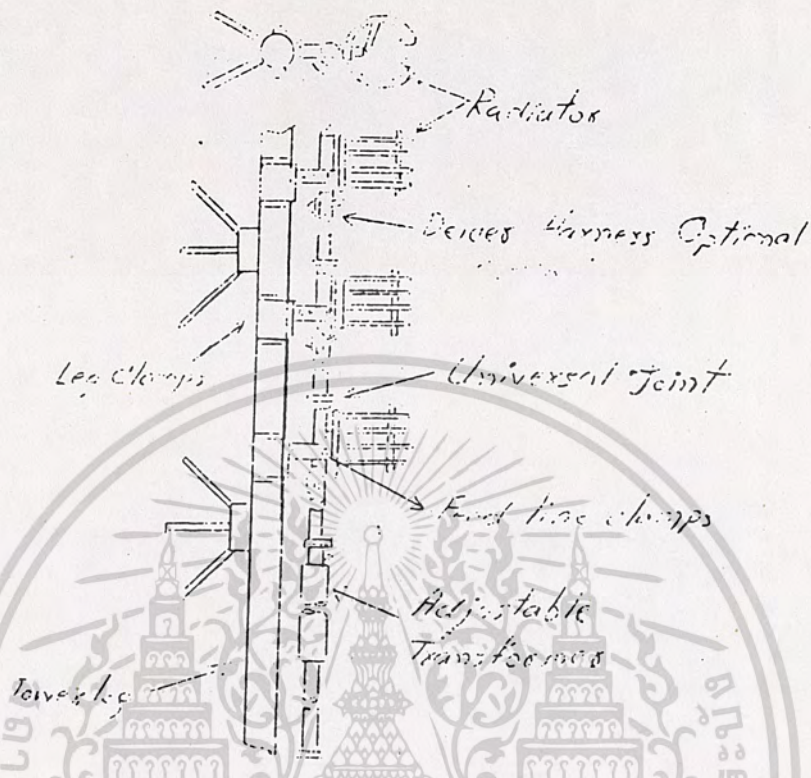 Radiator
Deicer Harness Optional
Leg Clamps
Universal Joint
Feed line clamps
Adjustable
Transformer
Tower leg